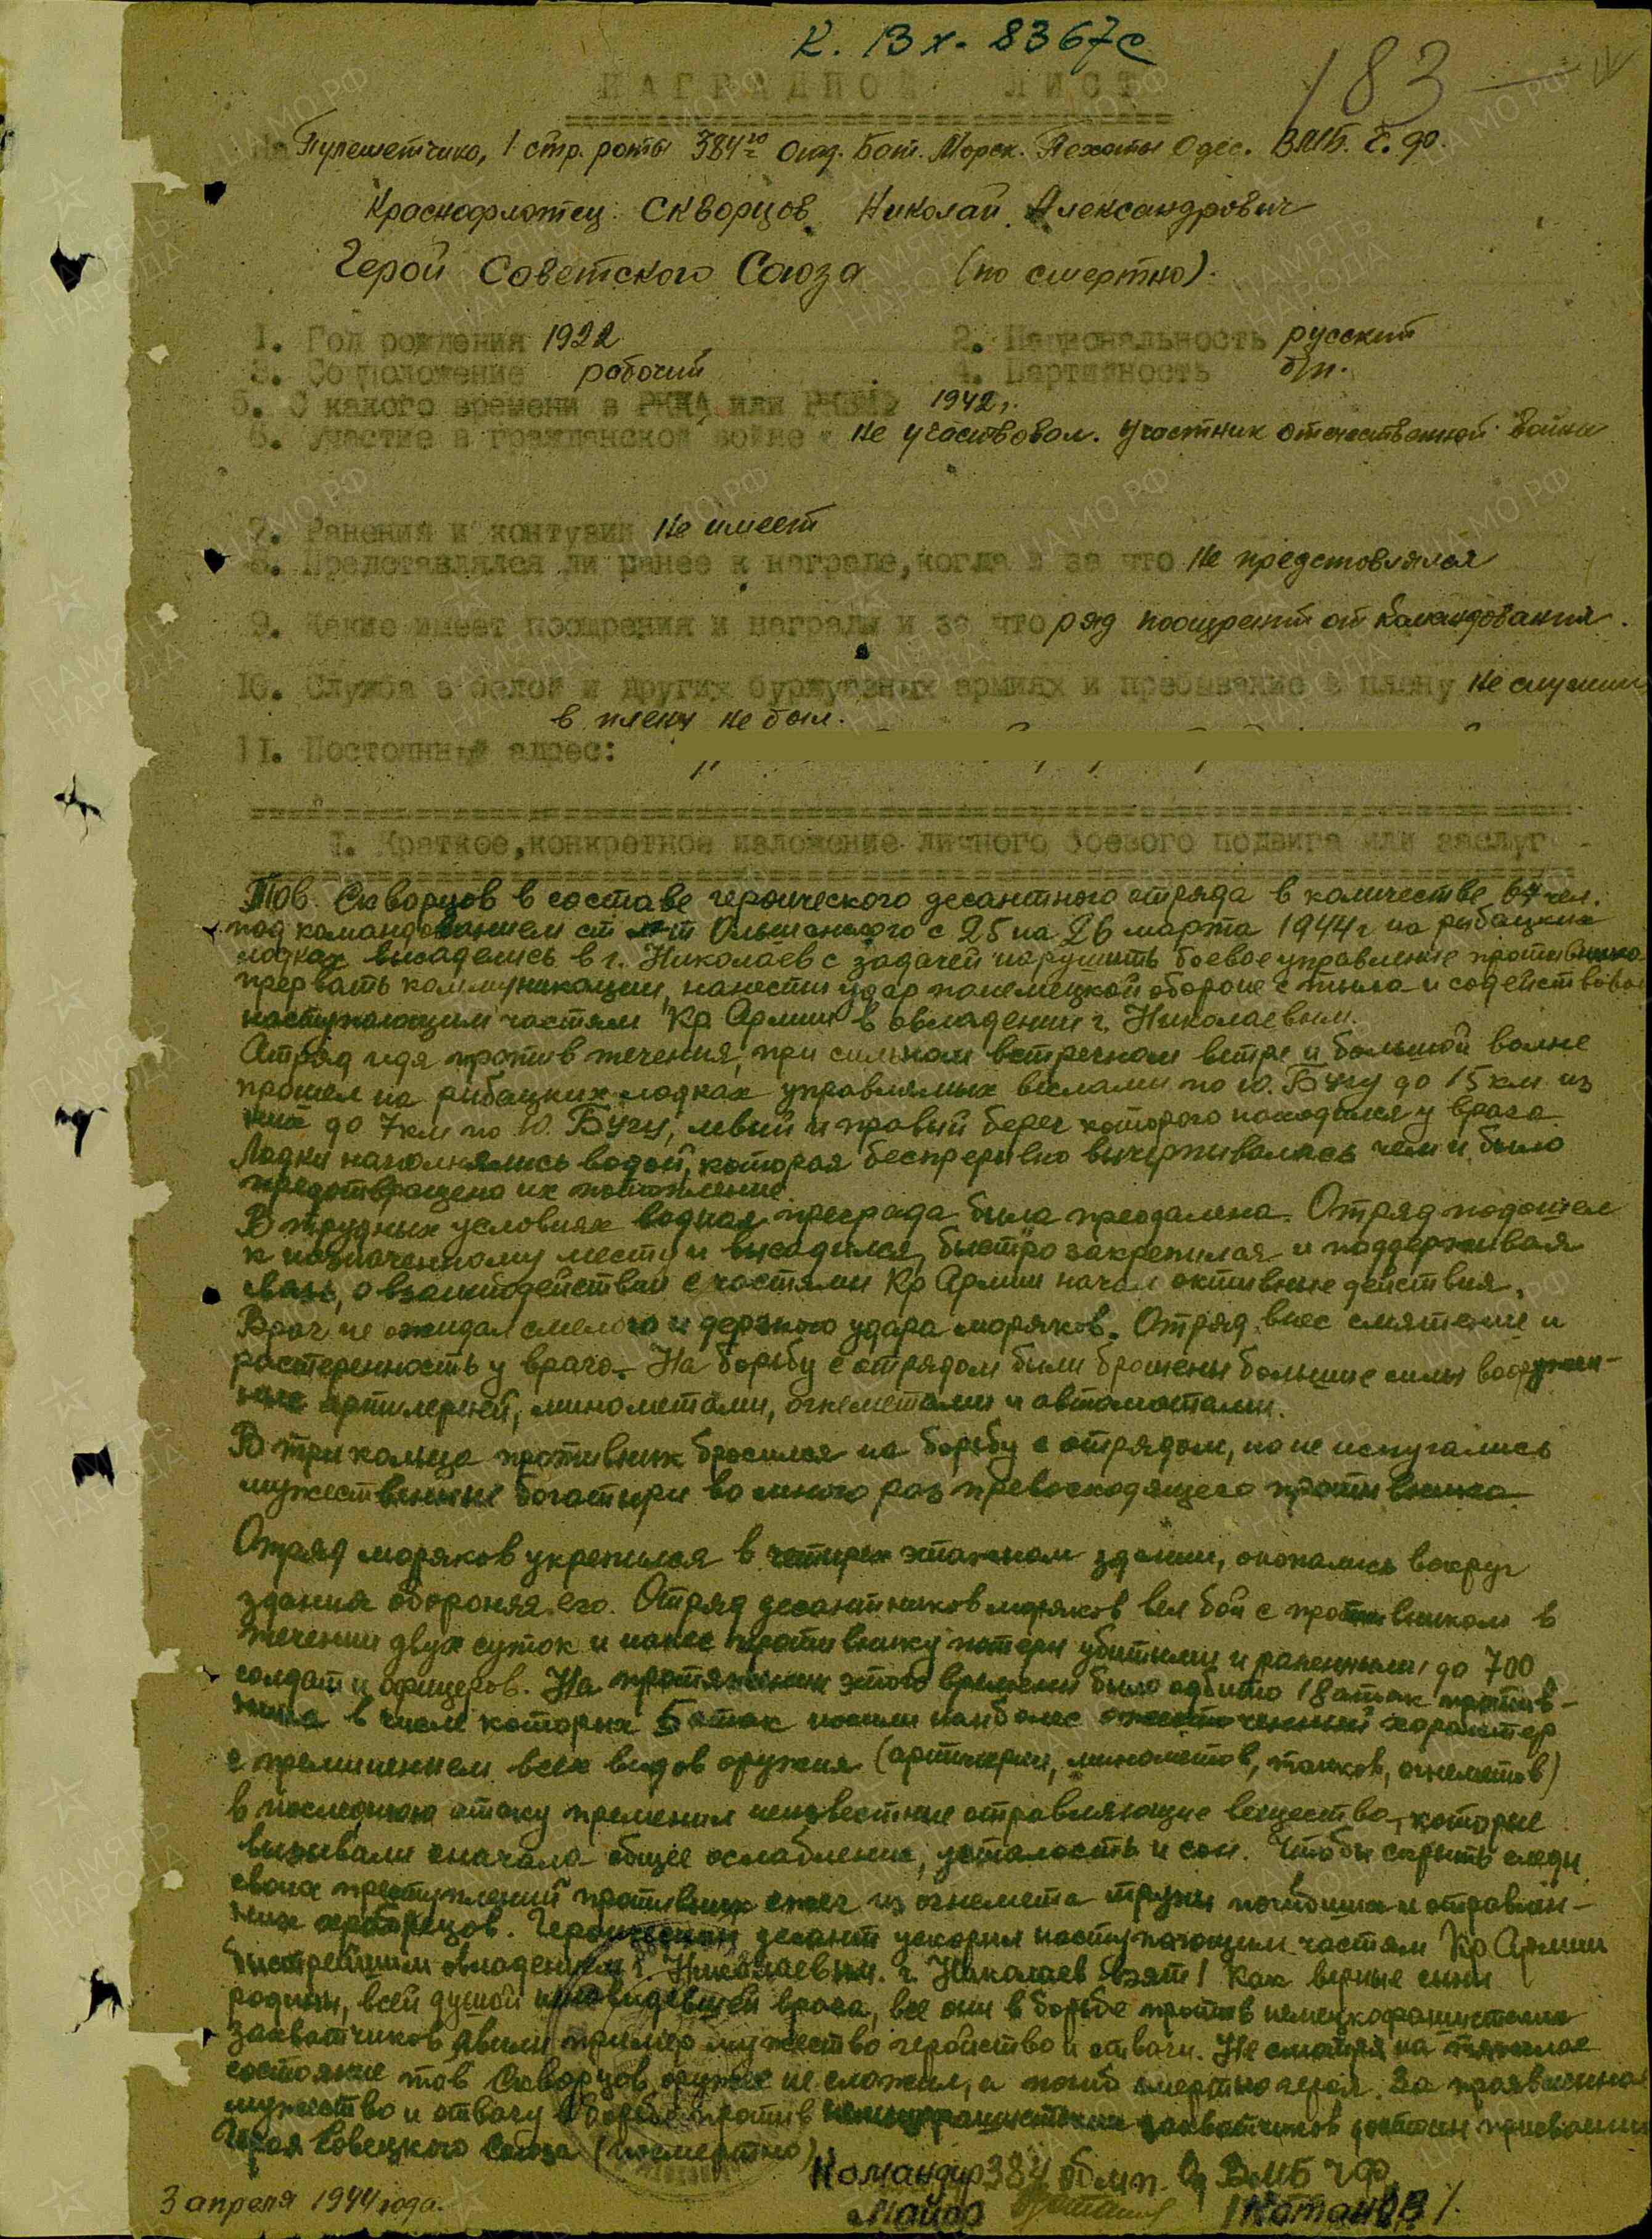 К. Вх. 8367с
183
НАГРАДНОЙ ЛИСТ
На Пулеметчика, 1 стр. роты 384го Отд. Бат. Морск. Пехоты Одес. ВМБ. Ч. Ф.
Краснофлотец Скворцов Николай Александрович
Герой Советского Союза (посмертно).
1. Год рождения 1922 2. Национальность русский
3. Соцположение рабочий 4. Партийность б/п.
5. С какого времени в РККА или РКВМФ 1942 г.
6. Участие в гражданской войне не участвовал. Участник отечественной войны
7. Ранения и контузии Не имеет
8. Представлялся ли ранее к награде, когда и за что Не представлялся
9. Какие имеет поощрения и награды и за что ряд поощрений от командования.
10. Служба в белой и других буржуазных армиях и пребывание в плену Не служил
в плену не был.
11. Постоянный адрес:
I. Краткое, конкретное изложение личного боевого подвига или заслуг
Тов. Скворцов в составе героического десантного отряда в количестве 64 чел.
под командованием ст л-т Ольшанского с 25 на 26 марта 1944 г на рыбацких
лодках высадились в г. Николаев с задачей нарушить боевое управление противника
прервать коммуникации, нанести удар по немецкой обороне с тыла и содействовать
наступающим частям Кр Армии в овладении г. Николаевым.
Отряд идя против течения, при сильном встречном ветре и большой волне
прошел на рыбацких лодках управляемых веслами по Ю. Бугу до 15 км из
них до 7 км по Ю. Бугу, левый и правый берег которого находился у врага
Лодки наполнялись водой, которая беспрерывно вычерпывалась чем и было
предотвращено их потопление.
В трудных условиях водная преграда была преодолена. Отряд подошел
к назначенному месту и высадился, быстро закрепился и поддерживая
связь, о взаимодействии с частями Кр Армии начал активные действия.
Враг не ожидал смелого и дерзкого удара моряков. Отряд внес смятение и
растеренность у врага. На борьбу с отрядом были брошены большие силы вооружен-
ные артилерией, минометами, огнеметами и автоматами.
В три кольца противник бросился на борьбу с отрядом, но не испугались
мужественные богатыри во много раз превосходящего противника
Отряд моряков укрепился в четырех этажном здании, окопались вокруг
здания обороняя его. Отряд десантников моряков вел бой с противником в
течении двух суток и нанес противнику потери убитыми и раненными до 700
солдат и офицеров. На протяжении этого времени было отбито 18 атак против-
ника в числе которых 5 атак носили наиболее ожесточенный характер
с применением всех видов оружия (артилерии, минометов, танков, огнеметов)
в последнюю атаку применил неизвестные отравляющие вещества, которые
вызывали сначала общее ослабление, усталость и сон. Чтобы скрыть следы
своих преступлений противник сжег из огнемета трупы погибших и отравлен-
ных храбрецов. Героический десант ускорил наступающим частям Кр Армии
быстрейшим овладением г. Николаевым. г. Николаев взят! Как верные сыны
родины, всей душой ненавидевшей врага, все они в борьбе против немецкофашистских
захватчиков явили пример мужество геройство и отваги. Не смотря на тяжелое
состояние тов Скворцов оружие не сложил, а погиб смертью героя. За проявленное
мужество и отвагу в борьбе против немецкофашистских захватчиков достоин присвоении
Героя Совецкого Союза (посмертно)
Командир 384 обмп. О ВМБ ЧФ
Майор /Котанов/.
3 апреля 1944 года.